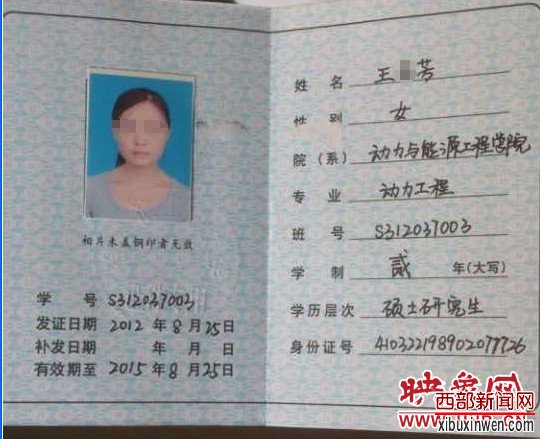 相片未盖钢印者无效
学 号 S312037003
发证日期 2012 年 8 月 25 日
补发日期 年 月 日
有效期至 2015 年 8 月 25 日
姓 名 王 芳
性 别 女
院（系） 动力与能源工程学院
专 业 动力工程
班 号 S312037003
学 制 贰 年（大写）
学历层次 硕士研究生
身份证号 410322198902077726
映象网
西部新闻网
xibuxinwen.com